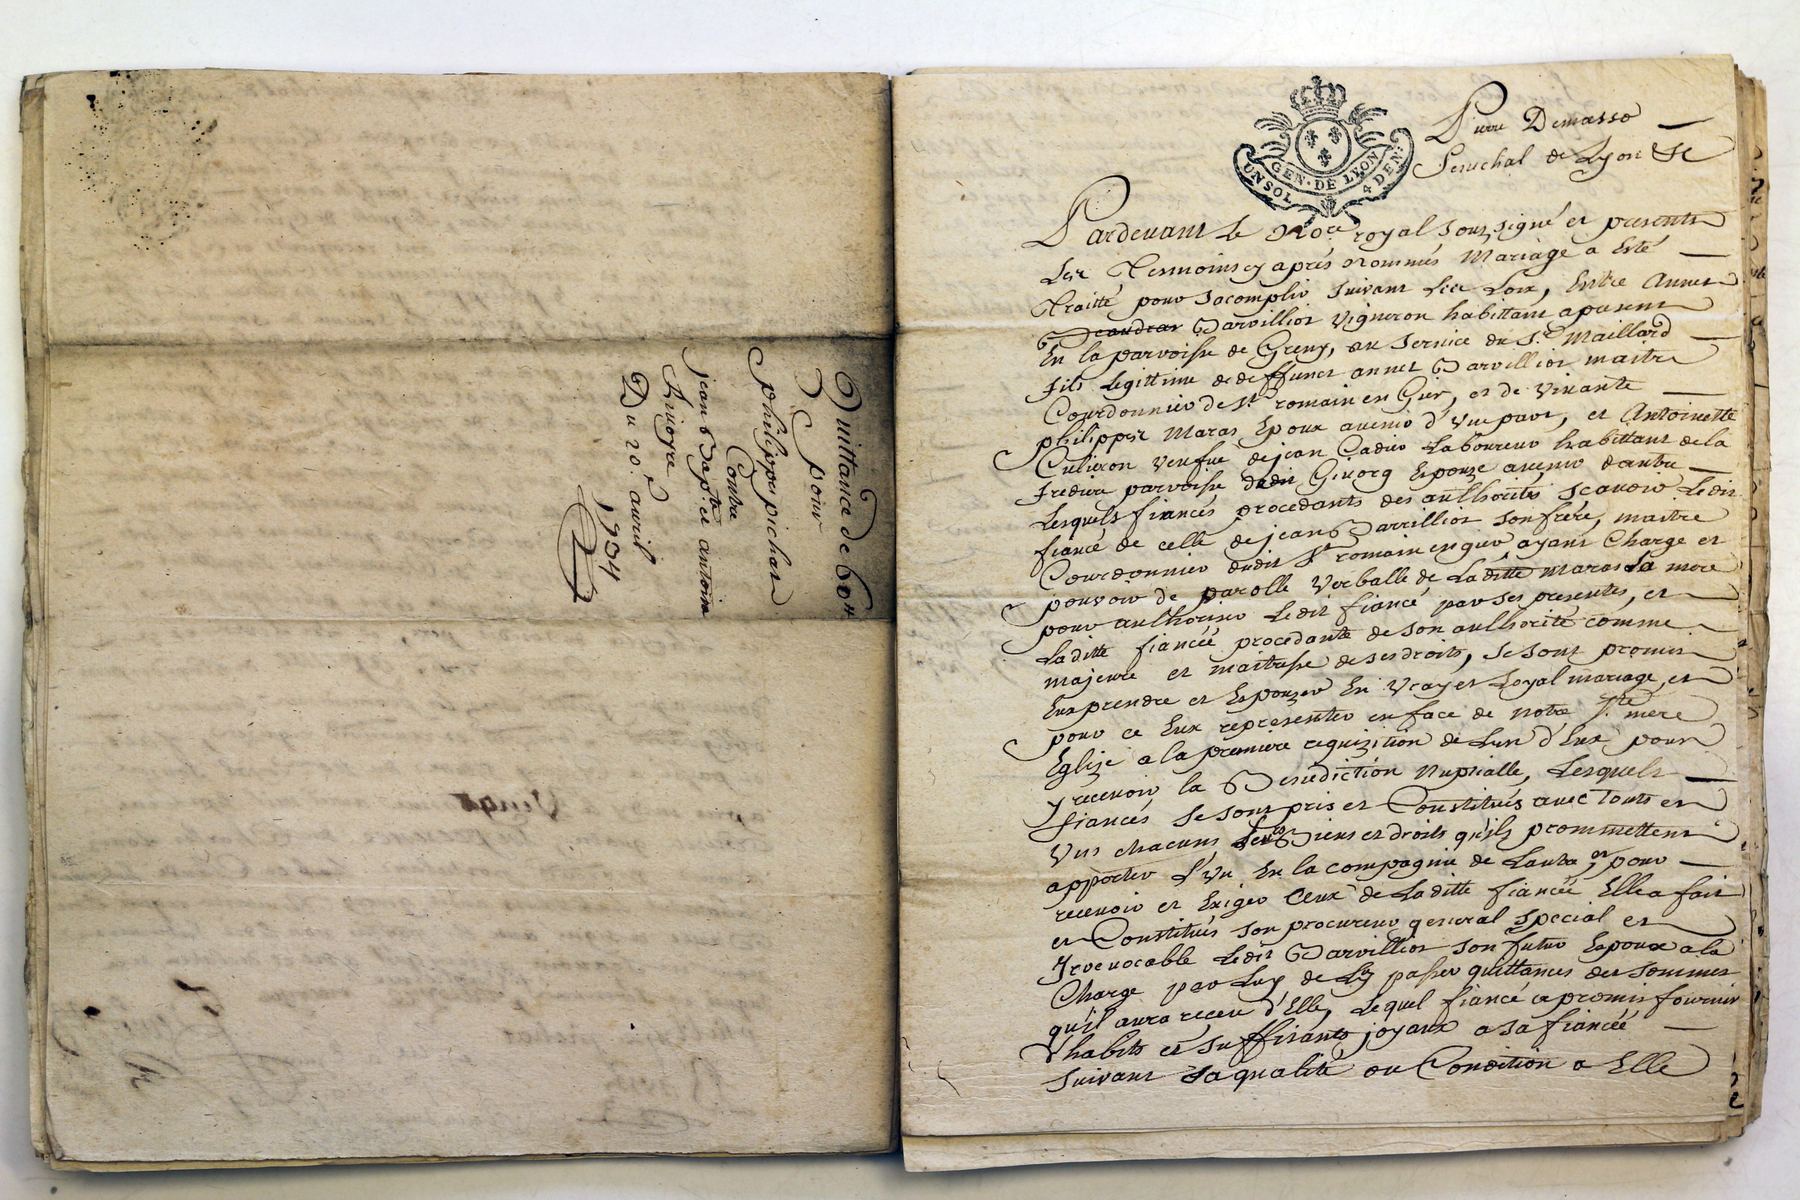 Quittance de 60ᵗᵗ
pour
philippes pichat
Contre
jean Bapte et antoine
Du 20. avril
1734
GEN. DE LYON
UN SOL 4 DEN.
Pierre Demasso
Senechal de Lyon &c
Pardevant Le Nore royal soussigné et presents
Les Temoins cy aprés Nommés Mariage a Esté
Traitté pour sacomplir suivant Les Loix, Entre Annet
Barvillior Vigneron habittant apresent
En la parroisse de Greny, au service du Sr. Maillard
fils Legittime de deffunct annet Barvillior maitre
Courdonnier de St. romain en Gier, et de vivante
philippes Maras Epoux avenir d'Vne part, et Antoinette
veufue de jean Cadier Laboureur habittant de la
parroisse dudit Givorg Epouze avenir dautre
Lesquels fiancés procedants des authorités scavoir Ledit
fiancé de celle de jean Barvillior son frere, maitre
Courdonnier dudit St romain en gier ayant Charge et
pouvoir de parolle Verballe de Laditte Maras La mere
pour authoriser Ledit fiancé par ses presentes, et
Laditte fiancée procedante de son authorité comme
majeure et maitresse de ses droits, se sont promis
Eux prendre et Epouzer En Vray et Loyal mariage, et
pour ce Eux representer en face de notre Ste mere
Eglize a la premiere requizition de Lun d'Eux pour
y recevoir la Benediction Nuptialle, Lesquels
fiancés se sont pris et Constitués avec Touts et
Vns chacuns Leurs Biens et droits qu'ils promettent
apporter L'Vn En la compagnie de Lautre, et pour
recevoir et Exiger Ceux de Laditte fiancée Elle a fait
et Constitués son procureur general special et
Irrevocable Ledit Barvillior son futur Epoux a la
Charge par Luy de Luy passer quittances des sommes
qu'il aura receu d'Elle, Lequel fiancé a promis fournir
habits et suffisants joyaux a sa fiancée
suivant sa qualité ou Condition a Elle